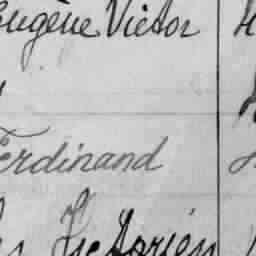 Eugène Victor
Ferdinand
Victorien